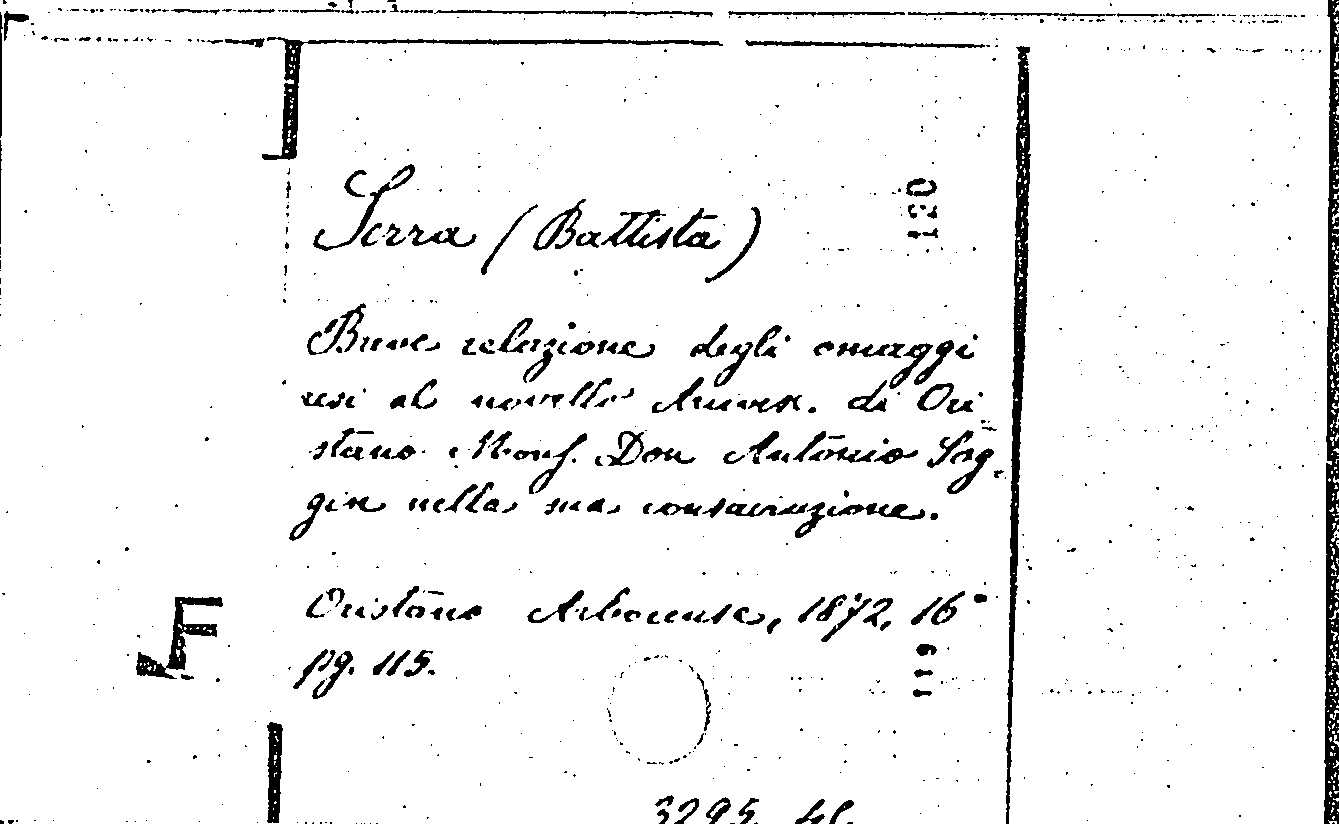 Serra (Battista)
120
Breve relazione degli omaggi
resi al novello Arcivesc. di Ori
stano Mons. Don Antonio Sog
gia nella sua consacrazione.
Oristano Arborense, 1872, 16°
pg. 115.
119
F
3295